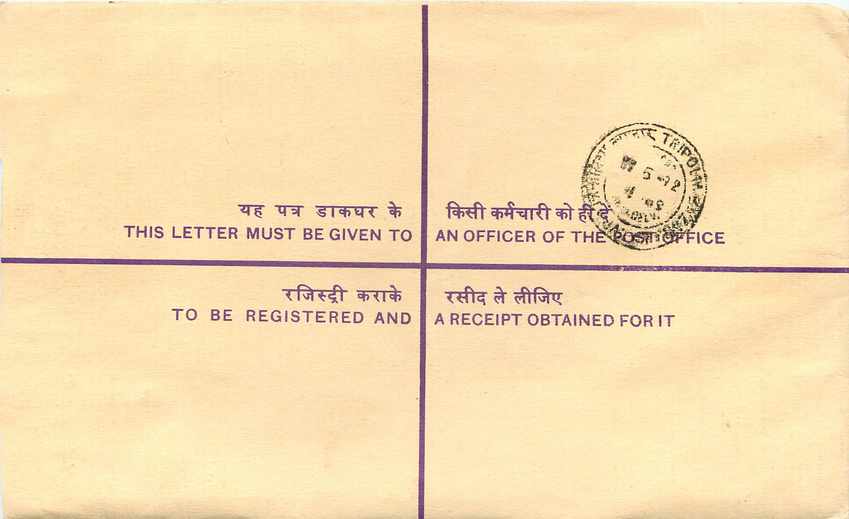 यह पत्र डाकघर के किसी कर्मचारी को ही दें
THIS LETTER MUST BE GIVEN TO AN OFFICER OF THE POST OFFICE
रजिस्ट्री कराके रसीद ले लीजिए
TO BE REGISTERED AND A RECEIPT OBTAINED FOR IT
TRIPOLIA